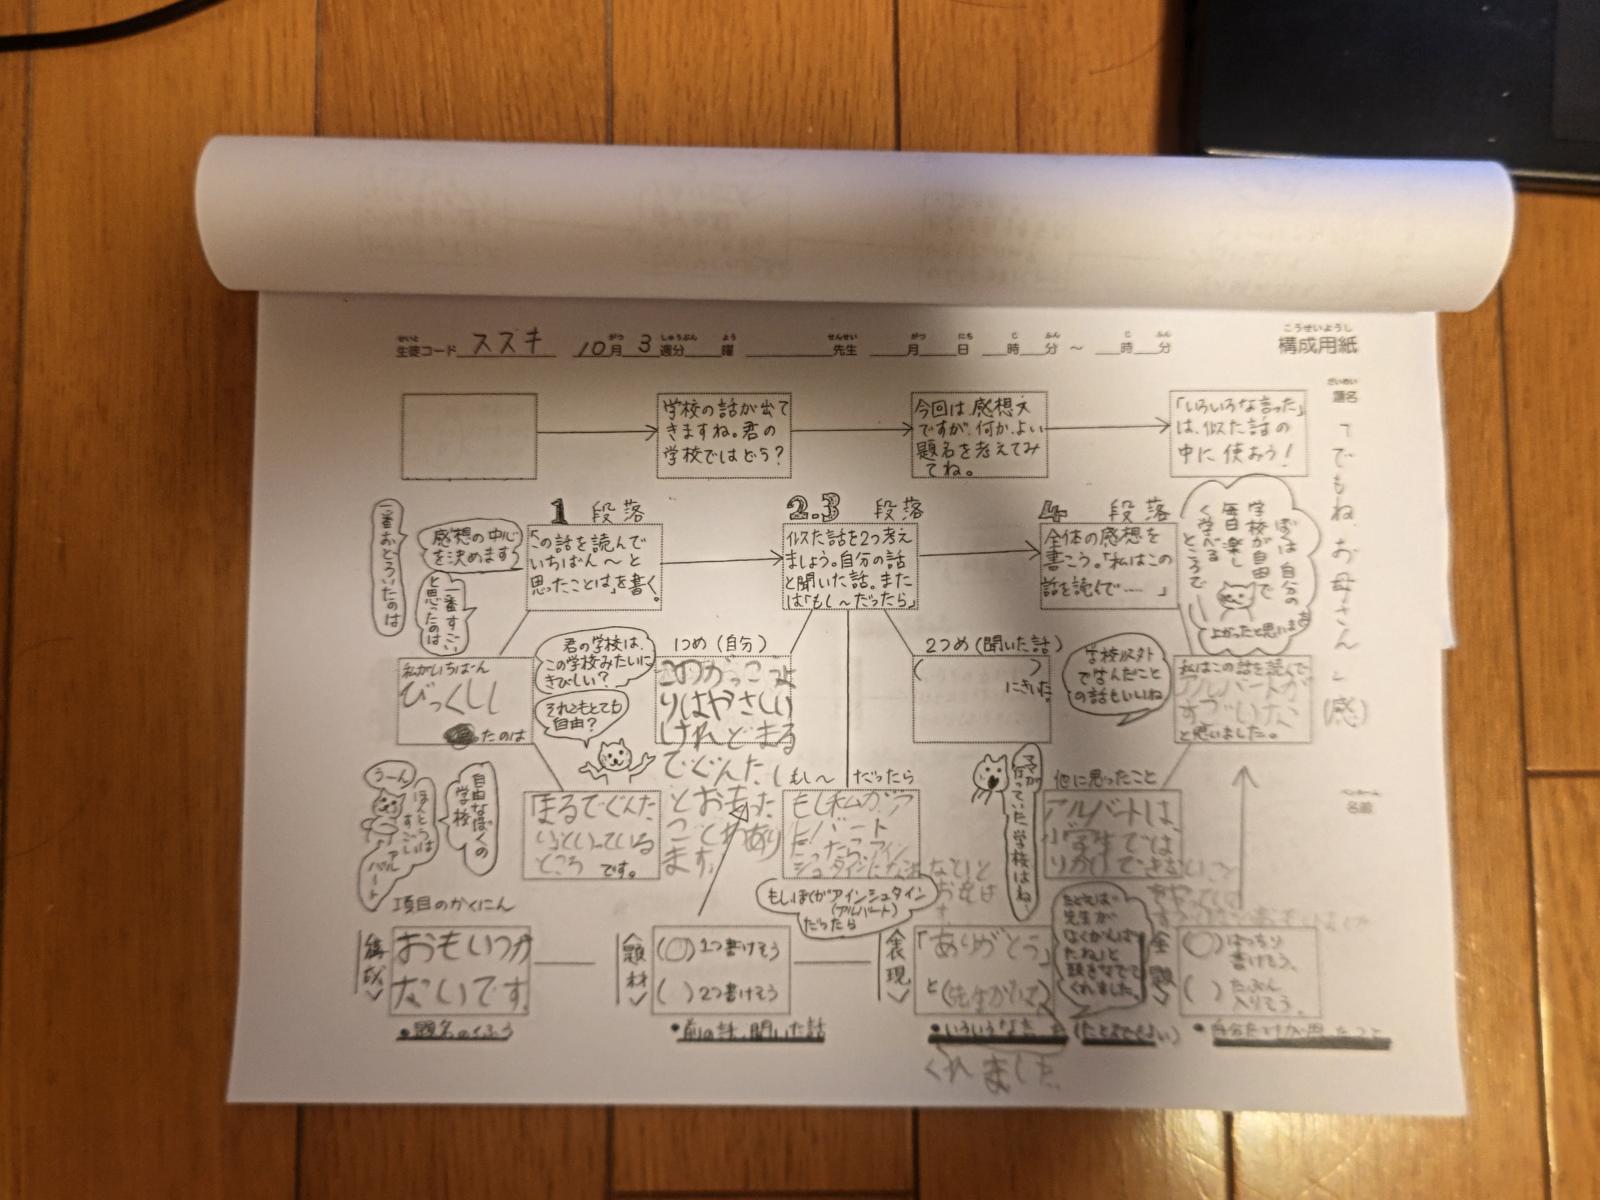 せいと がつ しゅうぶん よう せんせい がつ にち じ ふん じ ふん
生徒コード スズキ 10月 3週分 曜 先生 月 日 時 分 ~ 時 分
こうせいようし
構成用紙
だいめい
題名
「でもね、お母さん」(感)
ペンネーム
名前
学校の話が出て
きますね。君の
学校ではどう?
今回は、感想文
ですが、何か、よい
題名を考えてみ
てね。
「いろいろな言った」
は、似た話の
中に使おう!
一番おどろいたのは
感想の中心
を決めます
一番すごい
と思ったのは
1 段落
「この話を読んで
いちばん~と
思ったことは」を書く。
2.3 段落
似た話を2つ考え
ましょう。自分の話
と聞いた話。また
は「もし~だったら」
4 段落
全体の感想を
書こう。「私はこの
話を読んで……」
ぼくは自分の
学校が自由で
毎日楽し
く学べる
ところで
よかったと思います
私がいちばん
びっくし
たのは
君の学校は、
この学校みたいに
きびしい?
それともとても
自由?
1つめ(自分)
このがっこうよ
りはやさしい
けれどまる
でぐんた
とおもった
ことがあり
ます。
2つめ(聞いた話)
( )
にきいた
学校以外
でまなんだこと
の話もいいね
私はこの話を読んで
アルバートが
すごいな
と思いました。
うーん
ほんとうは
すごい
アルバート
自由なぼくの
学校
まるでぐんた
いといっている
ところ です。
もし~だったら
もし私がア
ルバート
だったらアイン
シュタインになれないと
もしぼくがアインシュタイン
(アルバート)
だったら
ママが
行っていた学校はね、
他に思ったこと
アルバートは、
小学生では
りかいできないこと
項目のかくにん
構成
おもいつか
ないです。
●題名のくふう
題材
(○)1つ書けそう
( )2つ書けそう
●前の話、聞いた話
表現
「ありがとう」
と(先生がいって
くれました
たとえば
先生が
「よくがんばっ
たね」と
くれました。
主題
(○)ばっちり
書けそう。
( )たぶん
入りそう。
●自分だけが思ったこと